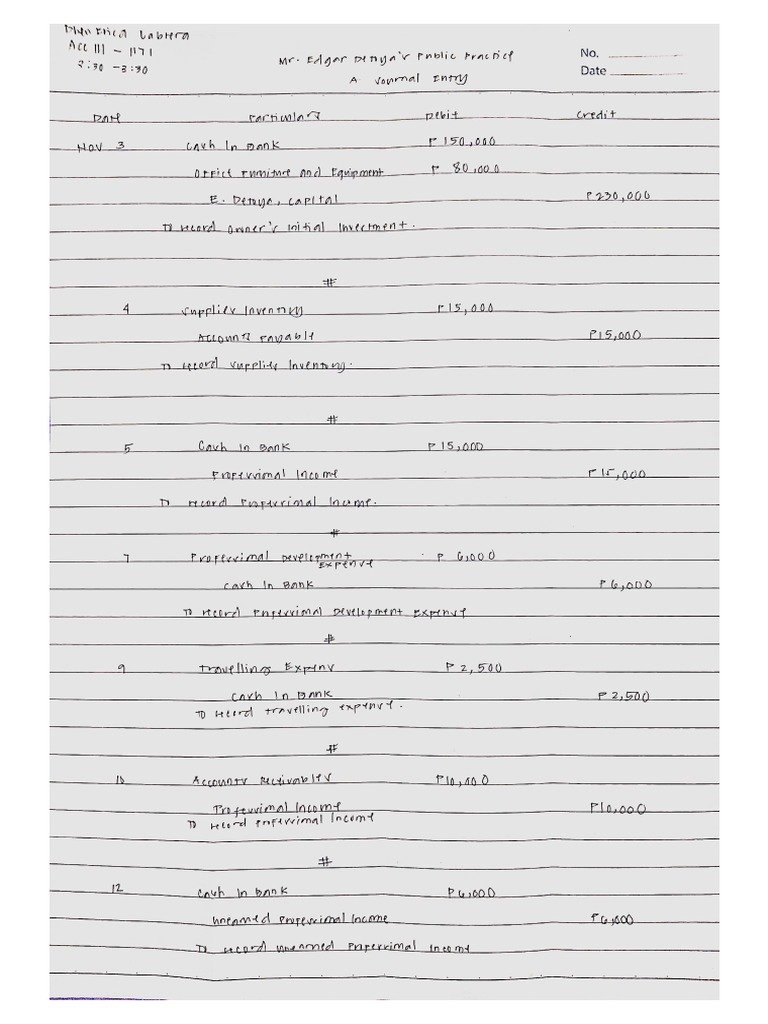 Dhen Erica Labtera
Acc 111 - 1171
2:30 - 3:30
Mr. Edgar Detoya's Public Practice
A Journal Entry
No.
Date
Date Particulars Debit Credit
Nov 3 Cash In Bank ₱ 150,000
Office Furniture and Equipment ₱ 80,000
E. Detoya, Capital ₱230,000
To record owner's initial investment.
#
4 Supplies Inventory ₱15,000
Accounts Payable ₱15,000
To record supplies Inventory.
#
5 Cash In Bank ₱ 15,000
Professional Income ₱15,000
To record Professional Income.
#
7 Professional Development Expense ₱ 6,000
Cash In Bank ₱6,000
To record Professional Development Expense
#
9 Travelling Expens ₱2,500
Cash In Bank ₱2,500
To record travelling expense.
#
10 Accounts Receivables ₱10,000
Professional Income ₱10,000
To record Professional Income
#
12 Cash In Bank ₱6,000
Unearned Professional Income ₱6,000
To record unearned Professional Income